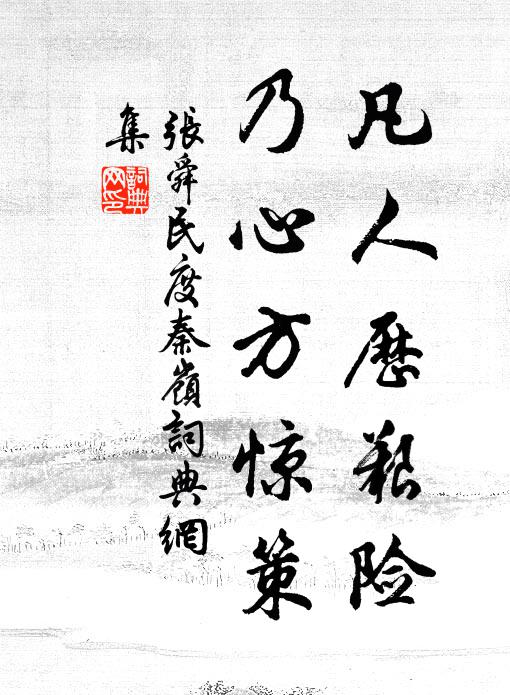 凡人歷艱险
乃心方惊策
張舜民度秦嶺詞典網
集
詞典
网印